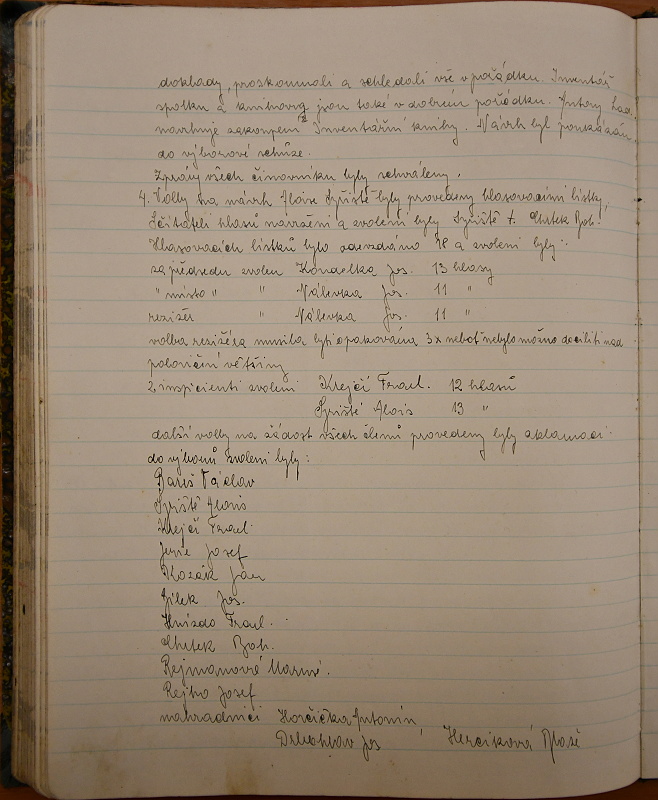 doklady, proskoumali a schledali vše v pořádku. Inventář
spolku a knihovny jsou také v dobrém pořádku. Antony
navrhuje zakoupení Inventářní knihy. Návrh byl poukázán
do výborové schůze.
Zprávy všech činovníku byly schváleny.
4. Volby na návrh Aloise Spiště byly provedeny hlasovacími lístky,
Sčitateli hlasů navrženi a zvoleni byly Spiště A. Chrtek Boh.
Hlasovacích lístků bylo odevzdáno 18 a zvoleni byly:
za předsedu zvolen Koudelka Jos. 13 hlasy
" místo " " Vávrka Jos. 11 "
režisér " Vávrka Jos. 11 "
volba režiséra musila býti opakována 3x neboť nebylo možno docíliti nad
poloviční většiny
2 inspicienti zvoleni Krejčí Frant. 12 hlasů
Spiště Alois 13 "
další volby na žádost všech členů provedeny byly aklamací.
do výborů zvoleni byly:
Bareš Václav
Spiště Alois
Krejčí Frant.
Josef
Kozák Jan
Jílek Jos.
Hnízdo Frant.
Chrtek Boh.
Rejmanová Marie.
Josef
nahradníci Horčička Antonín,
Jos Herciková